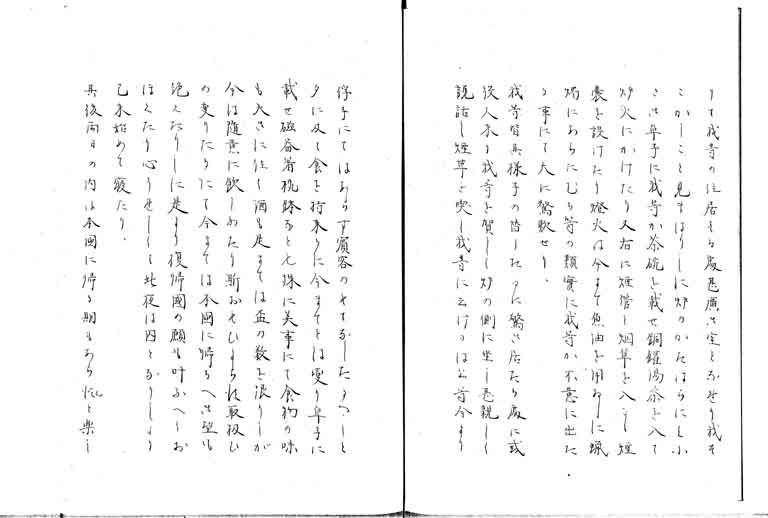 りて我等の住居する處甚廣き室となせり我等
こかしこと見まはりしに炉のかたはらにしふ
さき卓子に我等か茶碗を載せ銅罐湯茶を入て
炉火にかけたり又右に煙管し烟草を入るゝ煙
嚢を設けたり燈火は今まて魚油を用ゐしに蝋
燭にあらたむら等の類實に我等か不意に出た
る事にて大に驚歎せり
我等皆其様子の替したるに驚き居たる處に或
役人来り我等を賀して炉の側に坐し甚親しく
説話し煙草を喫し我等に云けるは公等今より
俘子にてはあらす賓客のもてなしたるへしと
夕に及て食を持来りに今まてとは変り卓子に
載せ磁器箸桃鉢なと七殊に美事にて食物の味
も大きに佳く酒も是まては盃の数を限りしが
今は随意に飲しめたり斯おもひよらぬ取扱ひ
の変りたるにて今まては本国に帰るへき望も
絶えたりしに是より復帰国の願も叶ふへくお
ほえたり心うせしくて此夜は囚となりしより
已来始めて寝たり
其後両日の内は本国に帰る期もあらんと楽し